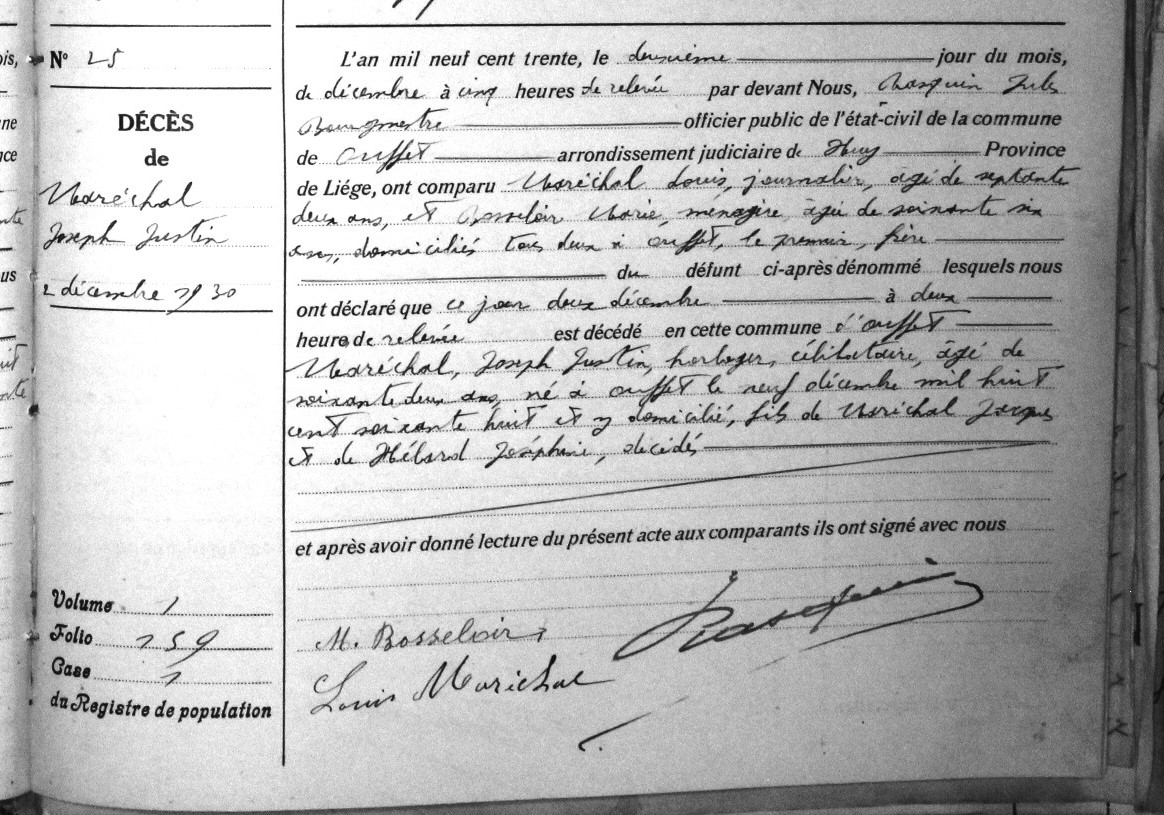 N° 25
DÉCÈS
de
Maréchal
Joseph Justin
2 décembre 1930
Volume 1
Folio 159
Case 1
du Registre de population
L'an mil neuf cent trente, le deuxième jour du mois,
de décembre à cinq heures de relevée par devant Nous, Jules
Bourgmestre officier public de l'état-civil de la commune
de Ouffet arrondissement judiciaire de Huy Province
de Liége, ont comparu Maréchal Louis, journalier, âgé de septante
deux ans, et Bosseloir Marie, ménagère, âgée de soixante six
ans, domiciliés tous deux à Ouffet, le premier, frère
du défunt ci-après dénommé lesquels nous
ont déclaré que ce jour deux décembre à deux
heures de relevée est décédé en cette commune d'Ouffet
Maréchal, Joseph Justin, horloger, célibataire, âgé de
soixante deux ans, né à Ouffet le neuf décembre mil huit
cent soixante huit et y domicilié, fils de Maréchal Jacques
et de Hélard Joséphine, décédés
et après avoir donné lecture du présent acte aux comparants ils ont signé avec nous
M. Bosseloir
Louis Maréchal